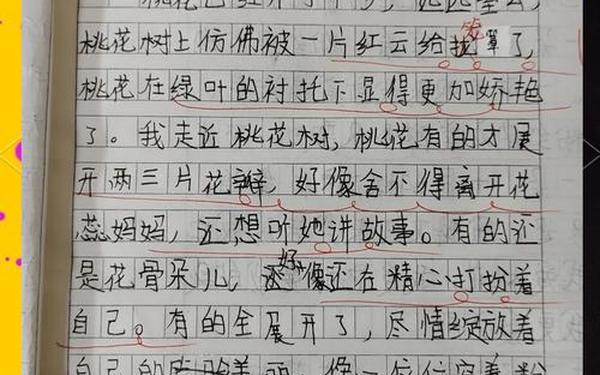 桃花树上仿佛被一片红云给笼了，
桃花在绿叶的衬托下显得更加娇艳
了。我走近桃花树，桃花有的才展
开两三片花瓣，好像舍不得离开花
蕊妈妈，还想听她讲故事。有的还
是花骨朵儿，好像还在精心打扮着
自己。有的全展开了，尽情绽放着
自己的美丽，像一位位穿着粉